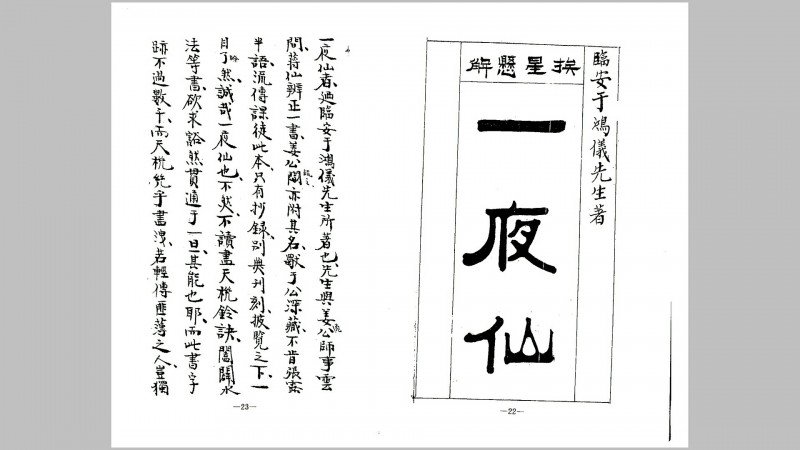 臨安于鴻儀先生著
挨星懸解
一夜仙
—22—
一夜仙者、廼臨安于鴻儀先生所著也、先生與姜公師事雲
間、蔣仙辨正一書、姜公闡亦附其名、獸于公深藏、不肯張
半語、流傳課徒、此本只有抄錄、別無刊刻、披覽之下、一
目了然、誠哉一夜仙也、不然、不讀盡天機鈐訣、闔闢水
法等書、欲求豁然貫通于一旦、其能也耶、而此書字
跡不過數千、而天機幾乎盡洩、若輕傳匪薄之人、豈獨
—23—